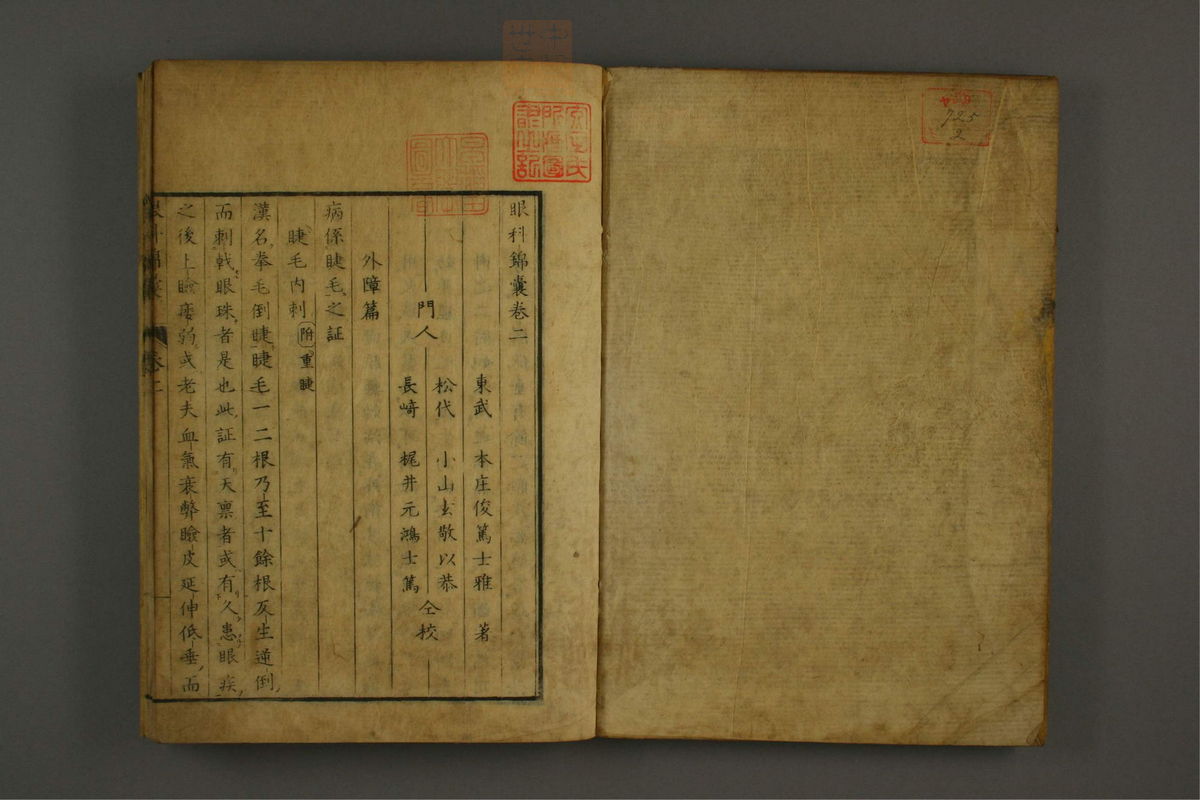 眼科錦囊卷二
東武 本庄俊篤士雅 著
門人
松代 小山玄敬以恭
長崎 梶井元鴻士篤
仝校
外障篇
病係睫毛之証
睫毛内刺 附重睫
漢名拳毛倒睫睫毛一二根乃至十餘根反生逆倒
而刺戟眼珠者是也此証有天禀者或有久患眼疾
之後上瞼痿弱或老夫血氣衰弊瞼皮延伸低垂而
725
2